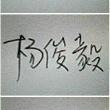 杨俊毅